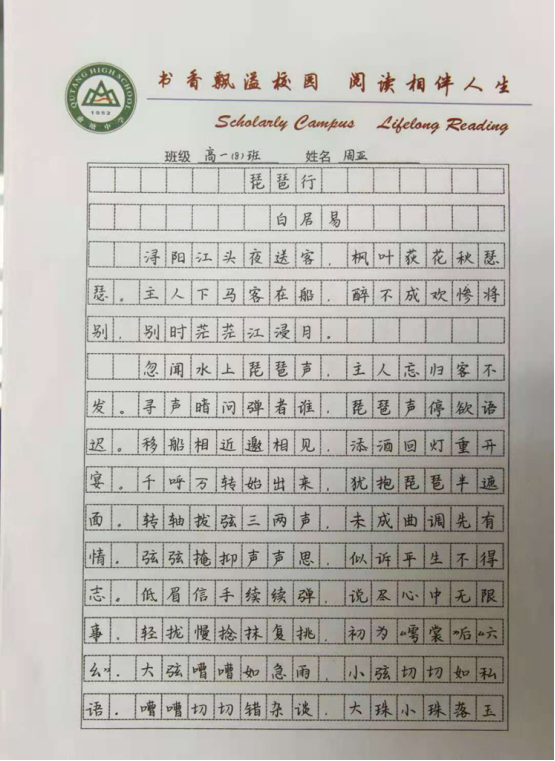 书香飘溢校园 阅读相伴人生
QUTANG HIGH SCHOOL
曲塘中学
Scholarly Campus Lifelong Reading
班级 高一(8)班 姓名 周亚
琵琶行
白居易
浔阳江头夜送客,枫叶荻花秋瑟
瑟。主人下马客在船,醉不成欢惨将
别,别时茫茫江浸月。
忽闻水上琵琶声,主人忘归客不
发。寻声暗问弹者谁,琵琶声停欲语
迟。移船相近邀相见,添酒回灯重开
宴。千呼万转始出来,犹抱琵琶半遮
面。转轴拨弦三两声,未成曲调先有
情。弦弦掩抑声声思,似诉平生不得
志。低眉信手续续弹,说尽心中无限
事,轻拢慢捻抹复挑,初为“霓裳”后“六
幺”。大弦嘈嘈如急雨,小弦切切如私
语。嘈嘈切切错杂谈,大珠小珠落玉